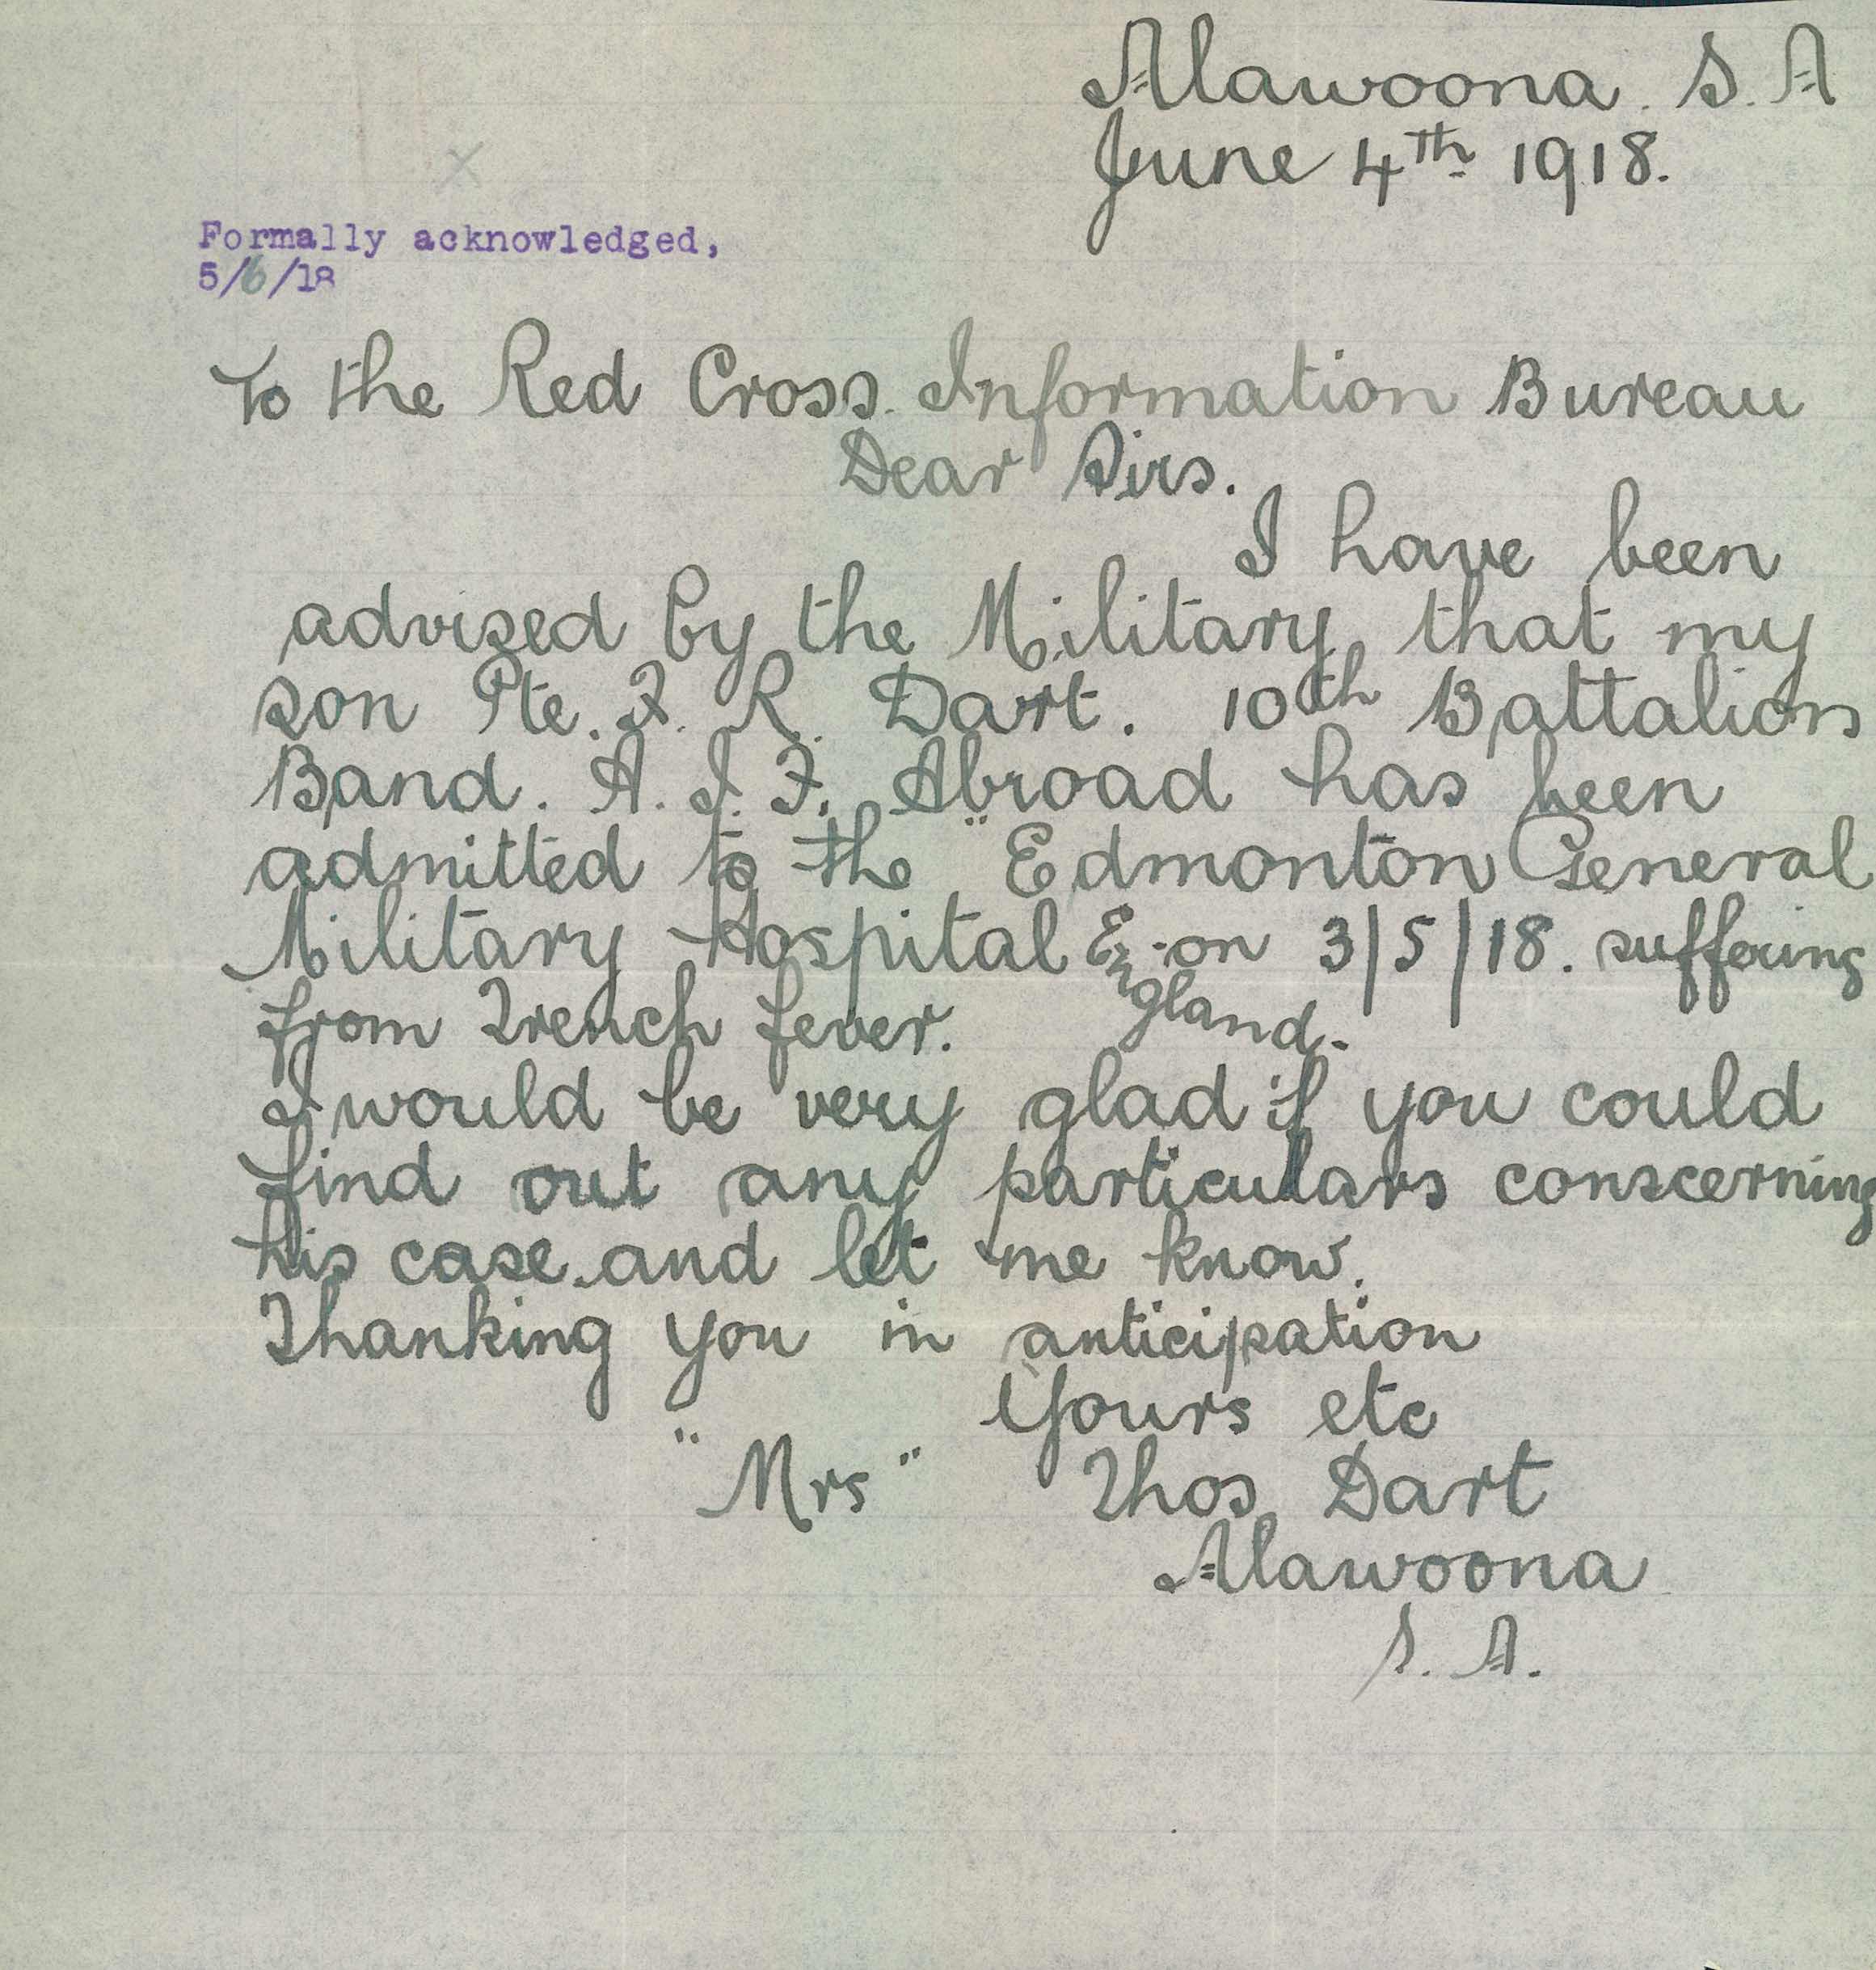 Alawoona. S. A
June 4th 1918.
Formally acknowledged,
5/6/18
To the Red Cross. Information Bureau
Dear Sirs.
I have been
advised by the Military, that my
son Pte. F. R. Dart. 10th Battalion
Band. A. I. F. Abroad has been
admitted to the "Edmonton General
Military Hospital England. on 3/5/18. suffering
from Trench fever.
I would be very glad if you could
find out any particulars conscerning
his case. and let me know.
Thanking you in anticipation
Yours etc
"Mrs" Thos Dart
Alawoona
S. A.